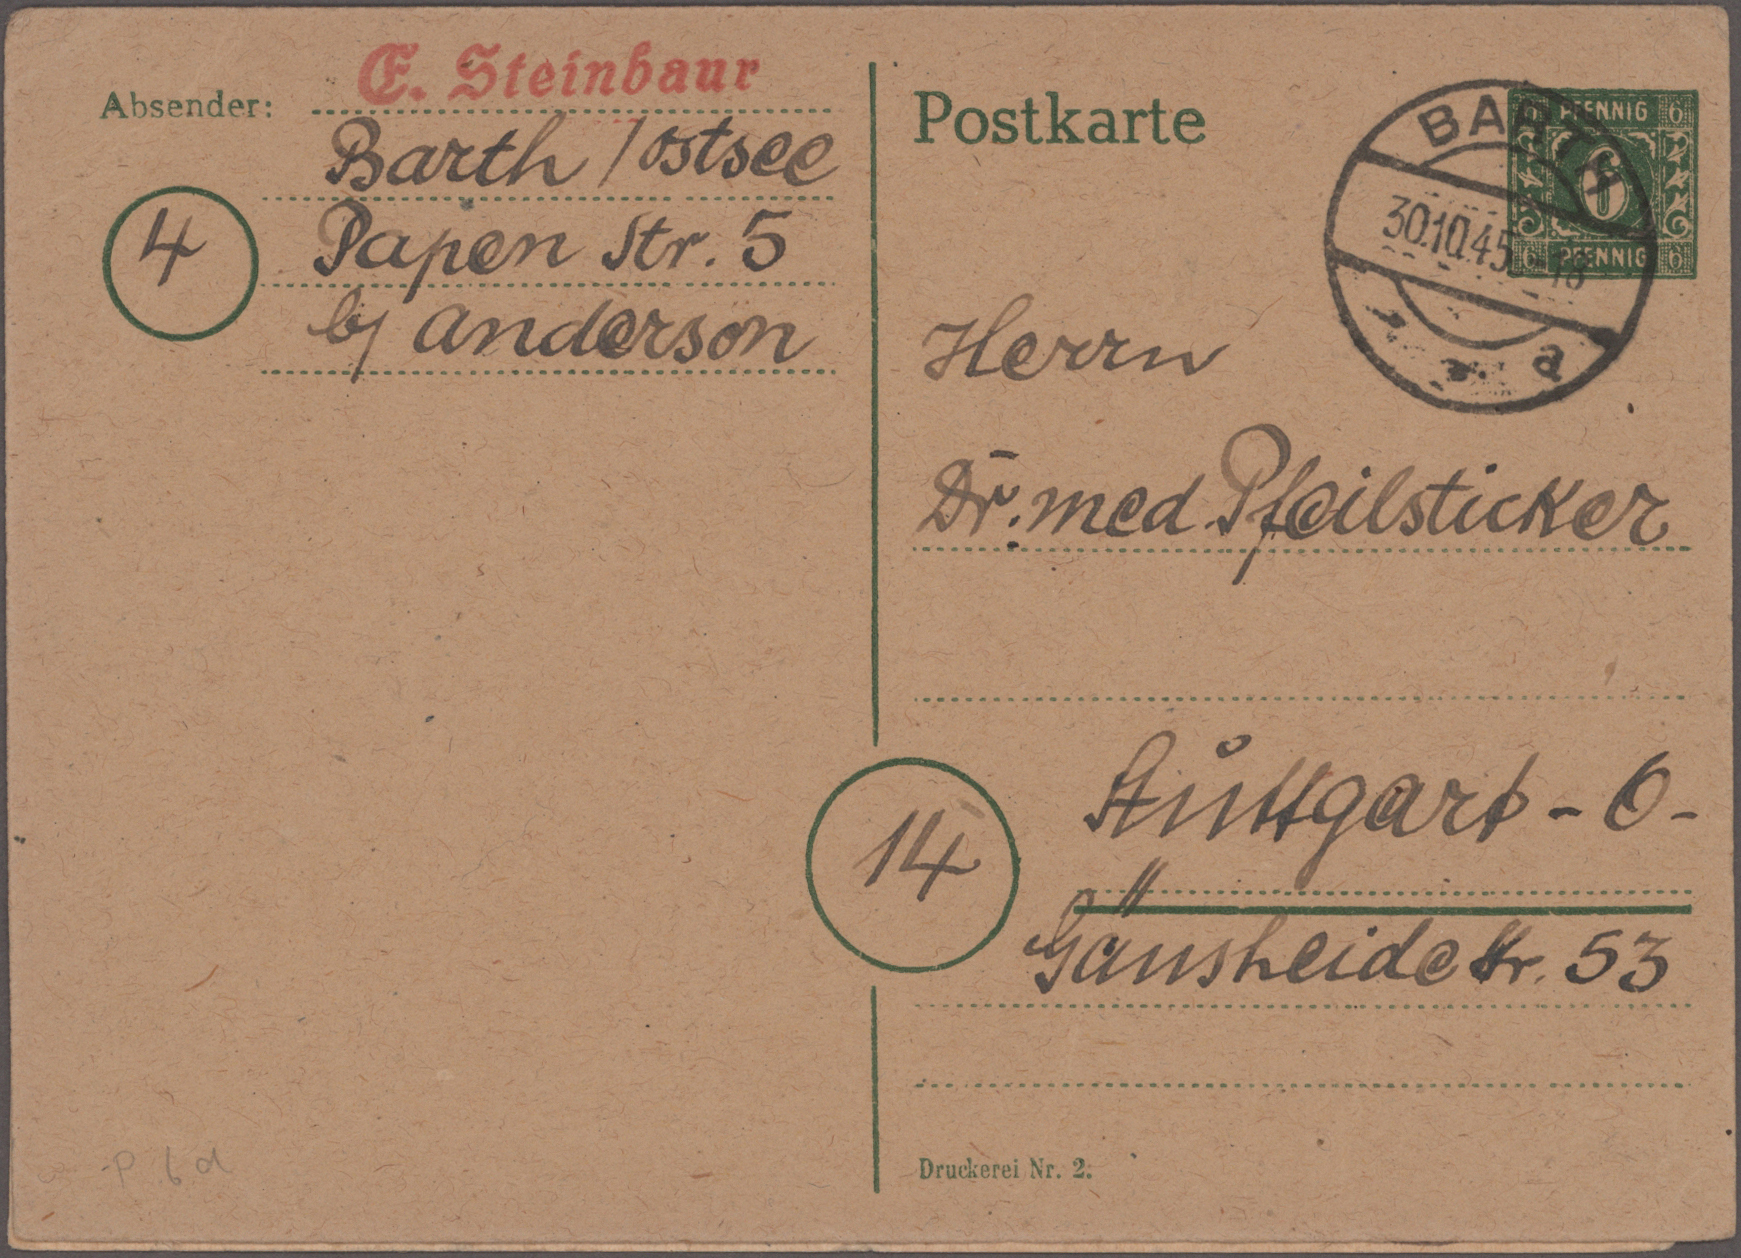 E. Steinbaur
Absender:
Barth / Ostsee
4
Papen Str. 5
bj Anderson
Postkarte
6 PFENNIG 6
6
6 PFENNIG 6
BARTH
30.10.45 -18
a
Herrn
Dr. med Pfeilsticker
Stuttgart - O -
14
Gänsheidestr. 53
Druckerei Nr. 2:
P 6 d